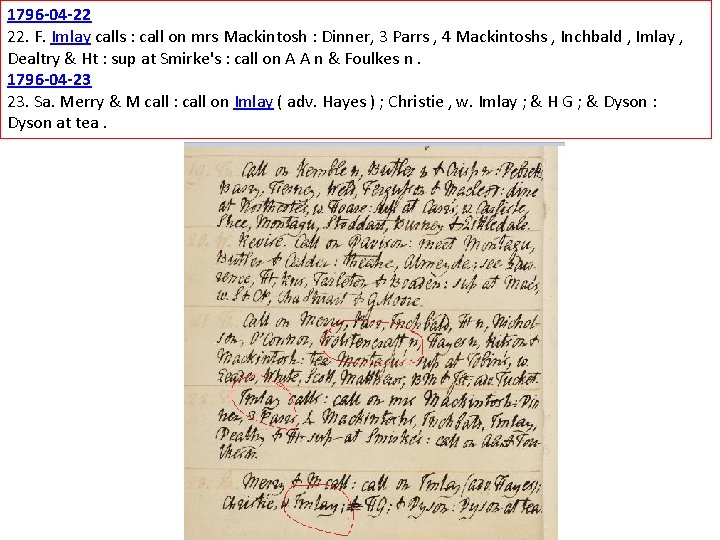 1796-04-22
22. F. Imlay calls : call on mrs Mackintosh : Dinner, 3 Parrs , 4 Mackintoshs , Inchbald , Imlay ,
Dealtry & Ht : sup at Smirke's : call on A A n & Foulkes n .
1796-04-23
23. Sa. Merry & M call : call on Imlay ( adv. Hayes ) ; Christie , w. Imlay ; & H G ; & Dyson :
Dyson at tea .
19. Tu. Call on Kemble n, Butler n & Crisp n:
Barry, Tierney, Ferguson & Macleod: dine
at Northcote's, w. Hoare: sup at Caris, w. Carlisle,
Shee, Montagu, Stoddart, Burney &
20. W. Revise. Call on Davison: meet Montagu,
Butler & Calder: theatre, Almeyda; see Law-
rence, Ht, Kns, Tarleton & Boaden: sup at
w. & Stuart & G Moore.
21. Call on Merry, Parr, Inchbald, Ht n, Nichol-
son, O'Connor, Wolstencraft n, Hayes n, Ritson &
Mackintosh: tea Montagu's: sup at Tobin's, w.
White, Scott, adv. Tucket.
22. F. Imlay calls: call on mrs Mackintosh: Din-
ner, 3 Parrs, 4 Mackintoshs, Inchbald, Imlay,
Dealtry & Ht: sup at Smirke's: call on AA n & Foul-
kes n.
23. Sa. Merry & M call: call on Imlay (adv. Hayes);
Christie, w. Imlay; & HG; & Dyson: Dyson at tea.